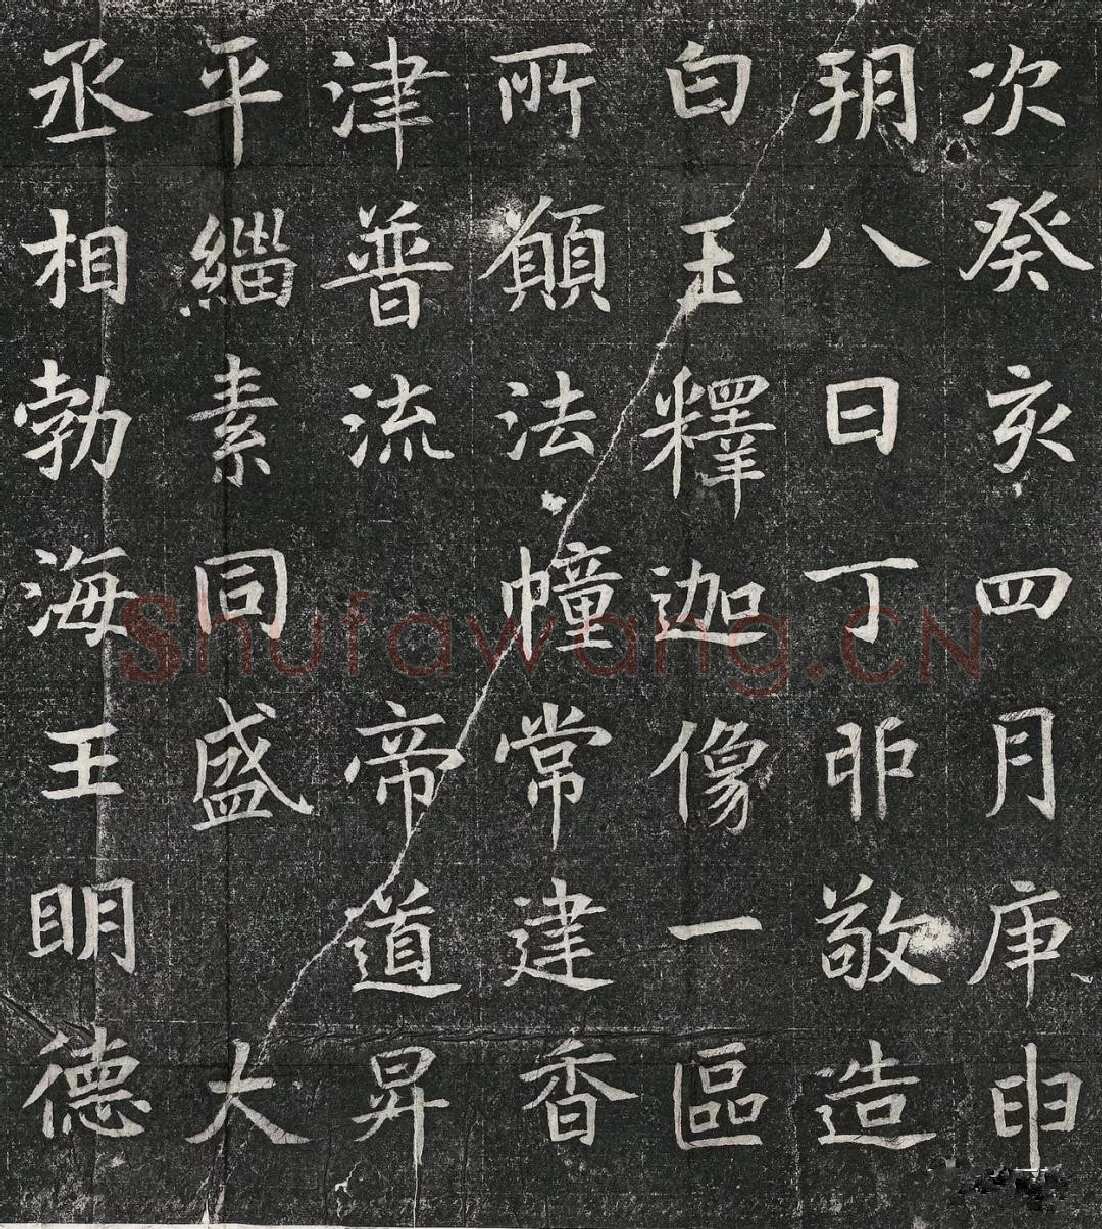 次癸亥四月庚申
朔八日丁卯敬造
白玉釋迦像一區
所願法幢常建香
津普流 帝道昇
平緇素同盛 大
丞相勃海王明德
Shufawang.CN